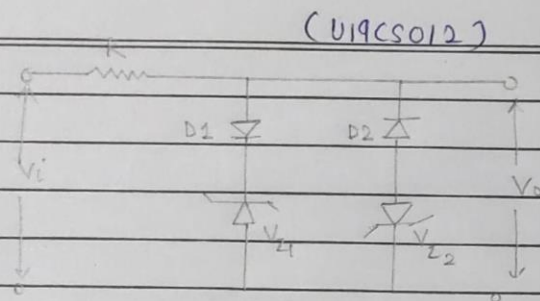 (U19CS012)
R
D1
D2
Vi
Vo
Vz1
Vz2